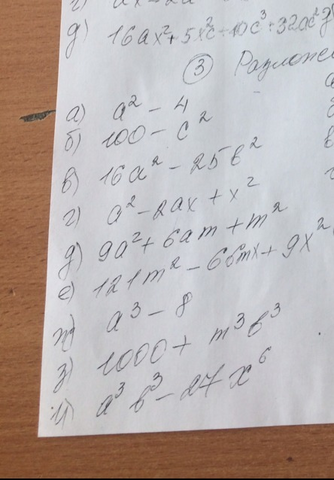 д) 16ax² + 5x²c - 10c³ + 32ac²
③ Разложе
а) a² - 4
б) 100 - c²
в) 16a² - 25b²
г) a² - 2ax + x²
д) 9a² + 6am + m²
е) 121m² - 66mx + 9x²
ж) a³ - 8
з) 1000 + m³b³
и) a³b³ - 27x⁶